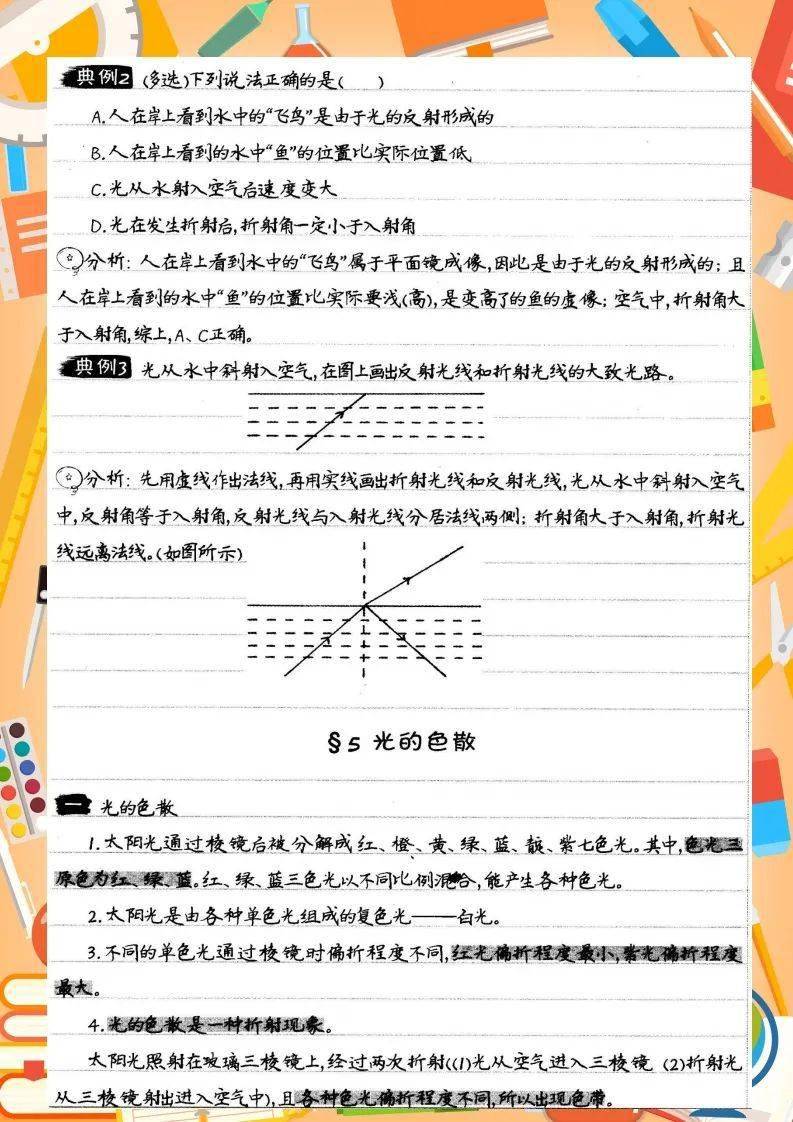 典例2 (多选)下列说法正确的是(  )
A.人在岸上看到水中的“飞鸟”是由于光的反射形成的
B.人在岸上看到的水中“鱼”的位置比实际位置低
C.光从水射入空气后速度变大
D.光在发生折射后,折射角一定小于入射角
分析: 人在岸上看到水中的“飞鸟”属于平面镜成像,因此是由于光的反射形成的; 且
人在岸上看到的水中“鱼”的位置比实际要浅(高),是变高了的鱼的虚像; 空气中,折射角大
于入射角,综上,A、C正确。
典例3 光从水中斜射入空气,在图上画出反射光线和折射光线的大致光路。
分析: 先用虚线作出法线,再用实线画出折射光线和反射光线,光从水中斜射入空气
中,反射角等于入射角,反射光线与入射光线分居法线两侧; 折射角大于入射角,折射光
线远离法线。(如图所示)
§5 光的色散
一 光的色散
1.太阳光通过棱镜后被分解成红、橙、黄、绿、蓝、靛、紫七色光。其中,色光三
原色为红、绿、蓝。红、绿、蓝三色光以不同比例混合,能产生各种色光。
2.太阳光是由各种单色光组成的复色光——白光。
3.不同的单色光通过棱镜时偏折程度不同,红光偏折程度最小,紫光偏折程度
最大。
4.光的色散是一种折射现象。
太阳光照射在玻璃三棱镜上,经过两次折射((1)光从空气进入三棱镜 (2)折射光
从三棱镜射出进入空气中),且各种色光偏折程度不同,所以出现色带。